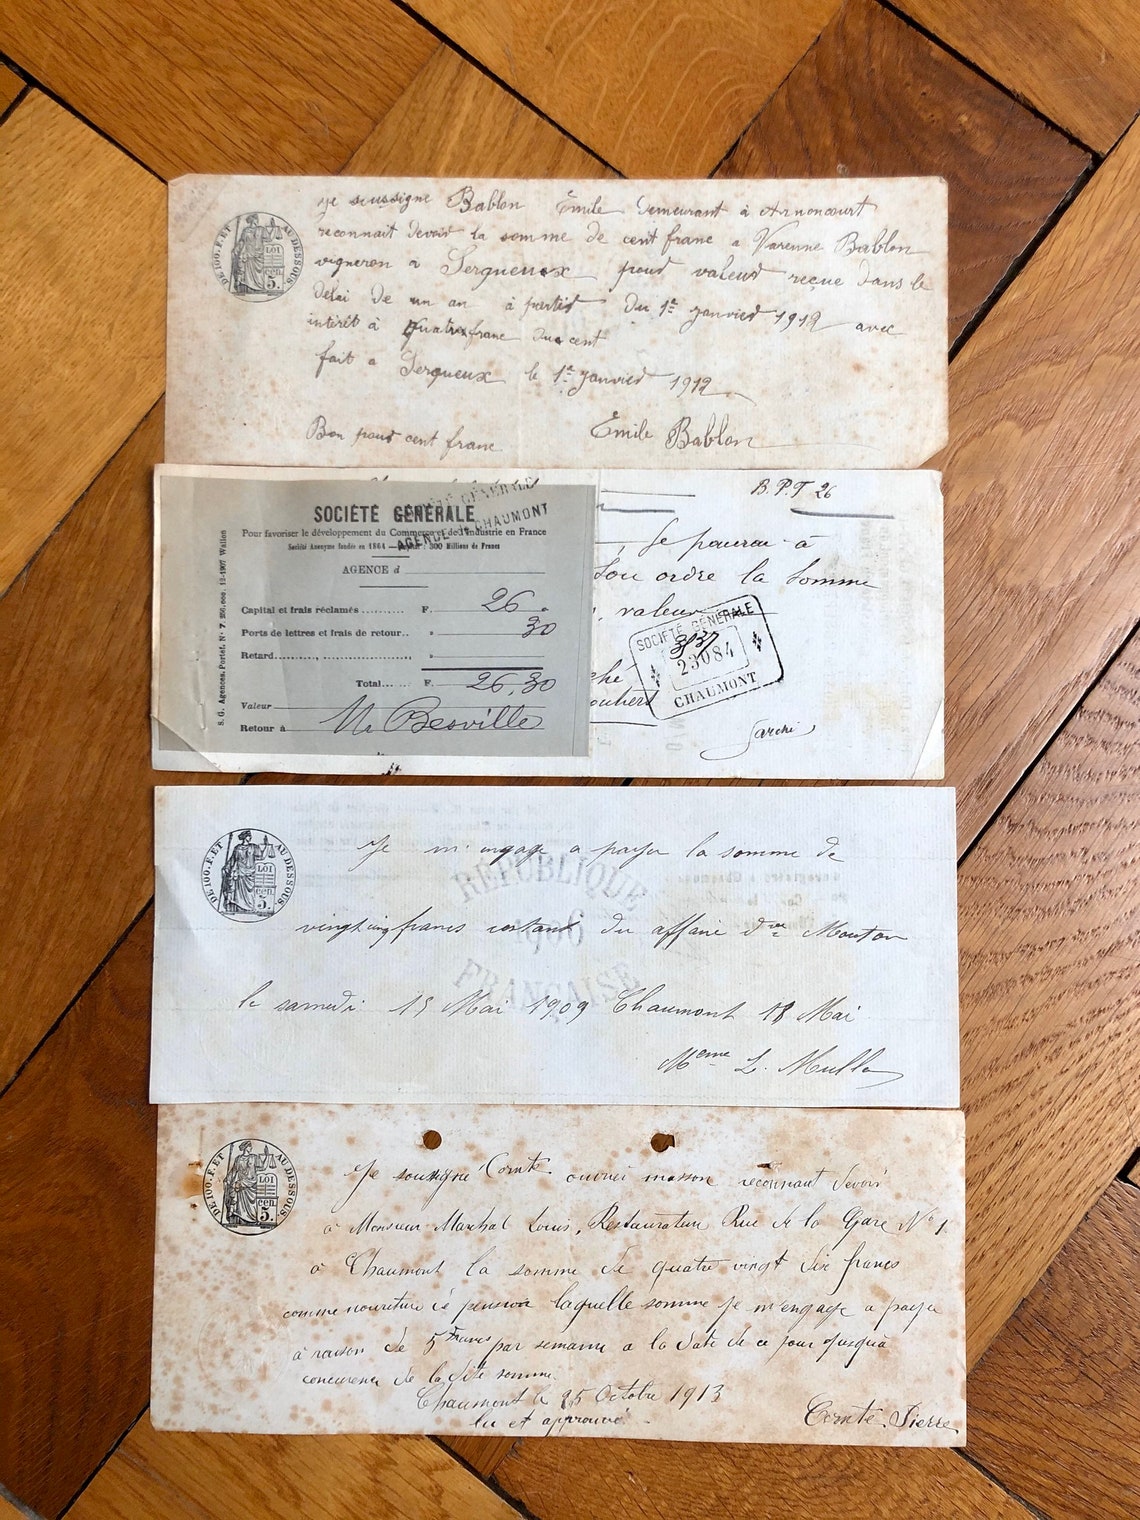 DE 100.F. ET AU DESSOUS
LOI
cen.
5.
Je soussigne Bablon Émile demeurant à Arnoncourt
reconnait devoir la somme de cent franc a Varenne Bablon
vigneron a Serqueux pour valeur reçue dans le
délai de un an à partir du 1er janvier 1912 avec
intérêt à quatre franc du cent
fait a Serqueux le 1er janvier 1912
Bon pour cent franc
Émile Bablon
SOCIÉTÉ GÉNÉRALE
AGENCE de CHAUMONT
SOCIÉTÉ GÉNÉRALE
Pour favoriser le développement du Commerce et de l'Industrie en France
Société Anonyme fondée en 1864 — Capital: 300 Millions de Francs
AGENCE d
Capital et frais réclamés F. 26
Ports de lettres et frais de retour 30
Retard
Total F. 26,30
Valeur
Retour à Mr Besville
S. G. Agences. Portef. N° 7. 12-1907 Wallon
B.P.F 26
, je paierai à
son ordre la somme
, valeur
SOCIÉTÉ GÉNÉRALE
3937
23084
CHAUMONT
DE 100.F. ET AU DESSOUS
LOI
cen.
5.
RÉPUBLIQUE
1906
FRANÇAISE
Je m'engage a payer la somme de
vingt cinq francs restant du affaire dme Mouton
le samedi 15 Mai 1909 Chaumont 18 Mai
Meme L. Muller
DE 100.F. ET AU DESSOUS
LOI
cen.
5.
Je soussigne Comte ouvrier masson reconnaut devoir
à Monsieur Marchal Louis, Restaurateur Rue de la Gare N° 1
à Chaumont la somme de quatre vingt dix francs
comme nourriture et pension laquelle somme je m'engage a payer
à raison de 5 francs par semaine a la date de ce jour jusqua
concurence de la dite somme.
Chaumont le 25 Octobre 1913
lu et approuvé
Comte Pierre